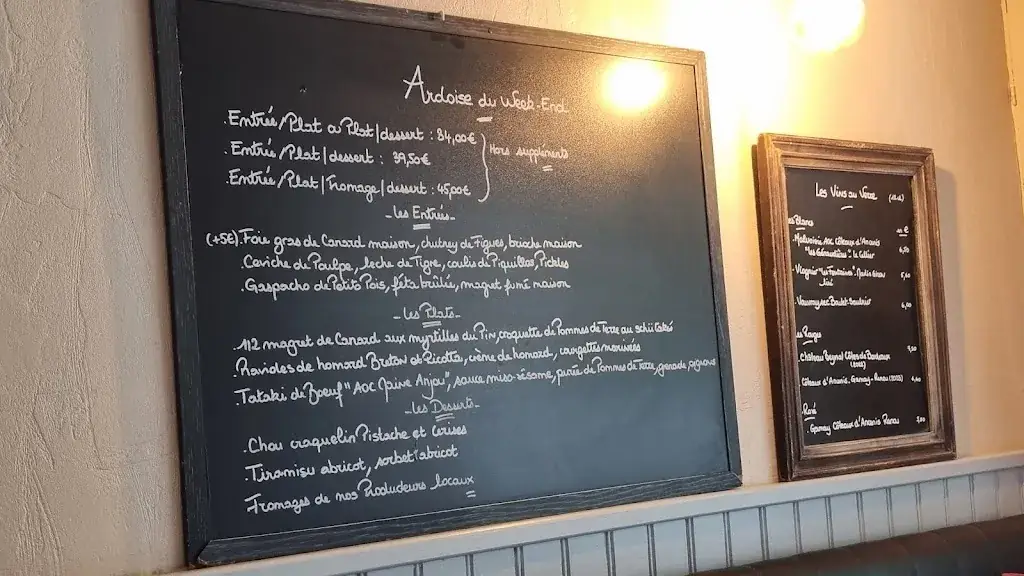 Ardoise du Week-End
. Entrée/Plat ou Plat/dessert : 34,00€
. Entrée/Plat/dessert : 39,50€
. Entrée/Plat/fromage/dessert : 45,00€
Hors suppléments
- Les Entrées -
(+5€) . Foie gras de Canard maison, chutney de Figues, brioche maison
. Ceviche de Poulpe, leche de Tigre, coulis de Piquillos, Pickles
. Gaspacho de Petits Pois, féta brûlée, magret fumé maison
- Les Plats -
. 1/2 magret de Canard aux myrtilles du Pin, croquette de Pommes de Terre au
. Ravioles de homard Breton et Ricotta, crème de homard, courgettes marinées
. Tataki de Bœuf "AOC Maine Anjou", sauce miso-sésame, purée de Pommes de Terre, grenade, pignons
- Les Desserts -
. Chou craquelin Pistache et Cerises
. Tiramisu abricot, sorbet abricot
. Fromages de nos Producteurs locaux
Les Vins au Verre
Les Blancs
. Malvoisie AOC Côteaux d'Ancenis
. Viognier "Les Fontaines"
. Vouvray sec
Les Rouges
. Château Peyrol Côtes de Bordeaux
. Côteaux d'Ancenis, Gamay
Rosé
. Gamay Côteaux d'Ancenis